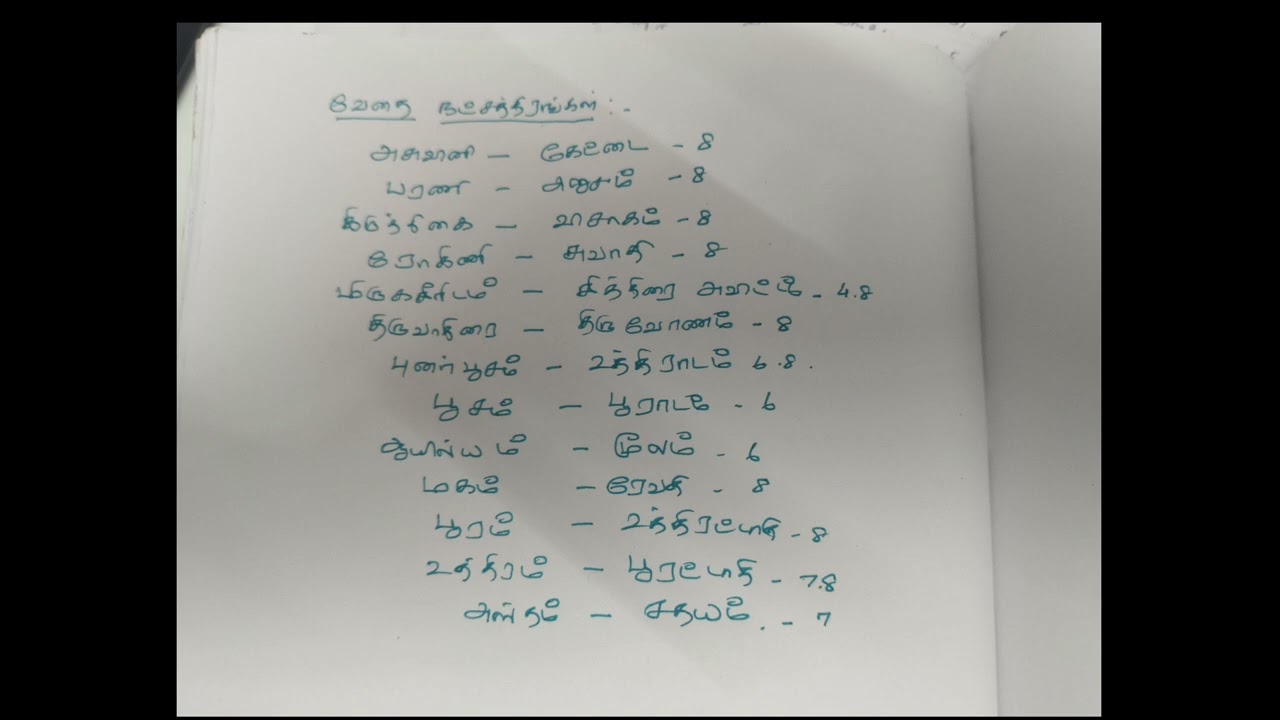 வேதை நட்சத்திரங்கள் :-
அசுவானி - கேட்டை - 8
பரணி - அனுசம் - 8
கிருத்திகை - விசாகம் - 8
ரோகிணி - சுவாதி - 8
மிருகசீரிடம் - சித்திரை அவிட்டம் - 4.8
திருவாதிரை - திருவோணம் - 8
புனர்பூசம் - உத்திராடம் 6.8.
பூசம் - பூராடம் - 6
ஆயில்யம் - மூலம் - 6
மகம் - ரேவதி - 8
பூரம் - உத்திரட்டாதி - 8
உத்திரம் - பூரட்டாதி - 7.8
அஸ்தம் - சதயம். - 7